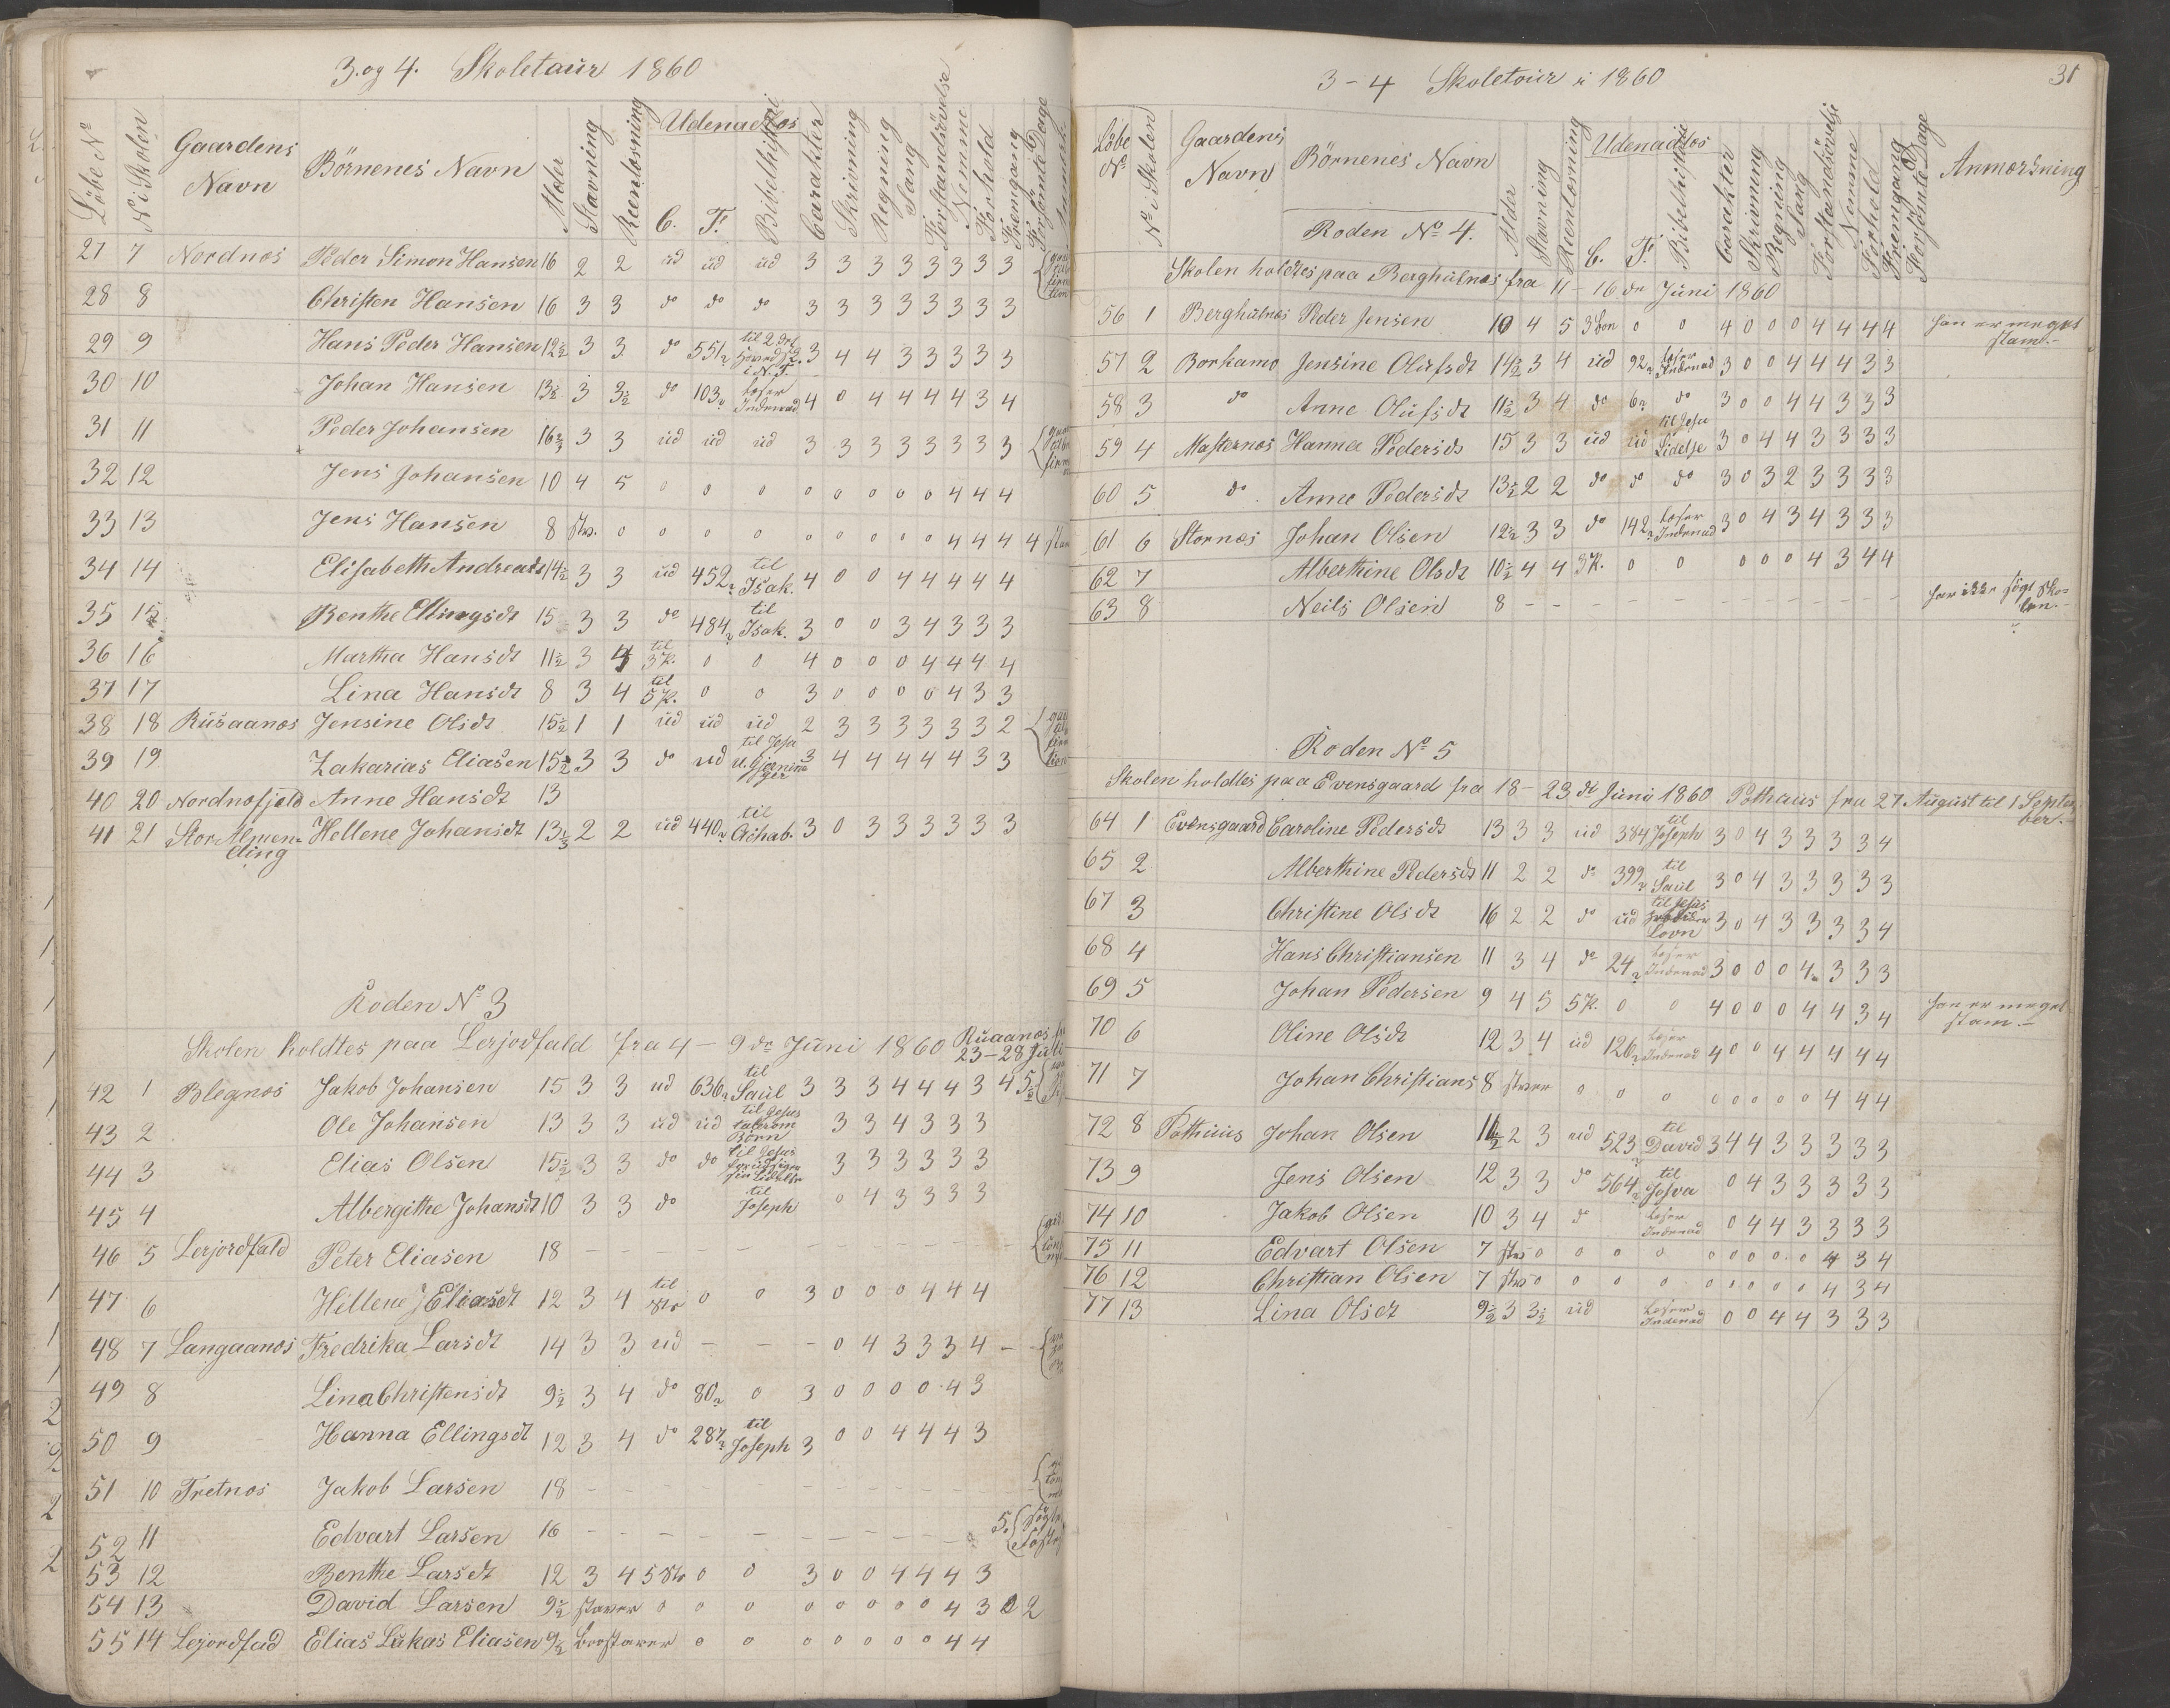 3. og 4. Skoletour 1860
Löbe No
No i Skolen
Gaardens Navn
Börnenes Navn
Alder
Stavning
Reenlæsning
Udenadlæs
C.
F.
Bibelhistorie
Carakter
Skrivning
Regning
Sang
Forstandsövelse
Nemme
Forhold
Fremgang
Forsömte Dage
27 7 Nordnæs Peder Simon Hansen 16 2 2 ud ud ud 3 3 3 3 3 3 3 3 3
28 8 Christen Hansen 16 3 3 do do do 3 3 3 3 3 3 3 3 3
29 9 Hans Peder Hansen 12½ 3 3 do 551 til 2 det i N. T. 3 4 4 3 3 3 3 3
30 10 Johan Hansen 13½ 3 3½ do 103 læser Indenad 4 0 4 4 4 4 3 4
31 11 Peder Johansen 16 3 3 ud ud ud 3 3 3 3 3 3 3 3
32 12 Jens Johansen 10 4 5 0 0 0 0 0 0 0 0 4 4 4
33 13 Jens Hansen 8 stav. 0 0 0 0 0 0 0 0 0 4 4 4 4
34 14 Elisabeth Andreasdt 14½ 3 3 ud 452 til Isak. 4 0 0 4 4 4 4 4
35 15 Benthe Ellingsdt 15 3 3 do 484 til Isak. 3 0 0 3 4 3 3 3
36 16 Martha Hansdt 11½ 3 4 til 3 K. 0 0 4 0 0 0 4 4 4 4
37 17 Lina Hansdt 8 3 4 til 5 K. 0 0 3 0 0 0 0 4 3 3
38 18 Rüsaanæs Jensine Olsdt 15½ 1 1 ud ud ud 2 3 3 3 3 3 3 2
39 19 Zakarias Eliasen 15½ 3 3 do ud til Jesu u. Gjerninger 3 4 4 4 4 4 3 3
40 20 Nordnæsfjeld Anne Hansdt 13
41 21 Stor Almen=ding Hellene Johansdt 13 2 2 ud 440 til Achab. 3 0 3 3 3 3 3 3
Roden No 3
Skolen holdtes paa Lerjordfald fra 4 - 9de Juni 1860 Rüaanæs 23-28 Juli
42 1 Blegnæs Jakob Johansen 15 3 3 ud 636 til Saül 3 3 3 4 4 4 3 4 5½
43 2 Ole Johansen 13 3 3 ud ud til Jesus taler om Börn 3 3 4 3 3 3
44 3 Elias Olsen 15½ 3 3 do do til Jesus forudsiger sin Lidelse 3 3 3 3 3 3
45 4 Albergithe Johansdt 10 3 3 do til Joseph 0 4 3 3 3 3
46 5 Lerjordfald Peter Eliasen 18 - - - - -
47 6 Hellene J Eliasdt 12 3 4 til 8de 0 0 3 0 0 0 4 4 4
48 7 Langaanæs Fredrika Larsdt 14 3 3 ud - - - 0 4 3 3 3 4 -
49 8 Lina Christensdt 9½ 3 4 do 80 0 3 0 0 0 0 4 3
50 9 Hanna Ellingsdt 12 3 4 do 287 til Joseph 3 0 0 4 4 4 3
51 10 Tretnæs Jakob Larsen 18 - - - - -
52 11 Edvart Larsen 16 - - - - - 5.
53 12 Benthe Larsdt 12 3 4 5 8de 0 0 3 0 0 4 4 4 3
54 13 David Larsen 9½ staver 0 0 0 0 0 0 0 0 4 3 2
55 14 Lerjordfald Elias Lükas Eliasen 9½ bogstaver 0 0 0 0 0 0 0 4 4
3-4 Skoletour i 1860
31
Löbe No
No i Skolen
Gaardens Navn
Börnenes Navn
Alder
Stavning
Reenlæsning
Udenadlæs
C.
F.
Bibelhistorie
Carakter
Skrivning
Regning
Sang
Forstandsövelse
Nemme
Forhold
Fremgang
Forsömte Dage
Anmærkning
Roden No 4.
Skolen holdtes paa Berghulnæs fra 11 - 16de Juni 1860
56 1 Berghulnæs Peder Jensen 10 4 5 3 Bön 0 0 4 0 0 0 4 4 4 4 han er meget stam.-
57 2 Borkamo Jensine Olufsdt 14½ 3 4 ud 92 læser Indenad 3 0 0 4 4 4 3 3
58 3 do Anne Olufsdt 11½ 3 4 do 6 do 3 0 0 4 4 3 3 3
59 4 Masternæs Hanna Pedersdt 15 3 3 ud ud til Jesu Lidelse 3 0 4 4 3 3 3 3
60 5 do Anne Pedersdt 13½ 2 2 do do do 3 0 3 2 3 3 3 3
61 6 Stornæs Johan Olsen 12½ 3 3 do 142 læser Indenad 3 0 4 3 4 3 3 3
62 7 Alberthine Olsdt 10½ 4 4 3 K. 0 0 0 0 0 4 3 4 4
63 8 Neils Olsen 8 - - - - - har ikke sögt Skolen.-
Roden No 5
Skolen holdtes paa Evensgaard fra 18 - 23de Juni 1860 Pothuus fra 27 August til 1 September.-
64 1 Evensgaard Caroline Pedersdt 13 3 3 ud 384 til Joseph 3 0 4 3 3 3 3 4
65 2 Alberthine Pedersdt 11 2 2 do 399 til Saül 3 0 4 3 3 3 3 3
67 3 Christine Olsdt 16 2 2 do ud til Jesus Lovn 3 0 4 3 3 3 3 4
68 4 Hans Christiansen 11 3 4 do 24 læser Indenad 3 0 0 0 4 3 3 3
69 5 Johan Pedersen 9 4 5 5 K. 0 0 4 0 0 0 4 4 3 4 han er meget stam.-
70 6 Oline Olsdt 12 3 4 ud 126 læser Indenad 4 0 0 4 4 4 4 4
71 7 Johan Christians 8 staver 0 0 0 0 0 0 0 0 4 4 4
72 8 Pothuus Johan Olsen 11½ 2 3 ud 523 til David 3 4 4 3 3 3 3 3
73 9 Jens Olsen 12 3 3 do 564 til Josva 0 4 3 3 3 3 3
74 10 Jakob Olsen 10 3 4 do læser Indenad 0 4 4 3 3 3 3
75 11 Edvart Olsen 7 stav 0 0 0 0 0 0 0 0 0 4 3 4
76 12 Christian Olsen 7 stav 0 0 0 0 0 0 0 0 0 4 3 4
77 13 Lina Olsdt 9½ 3 3½ ud læser Indenad 0 0 4 4 3 3 3